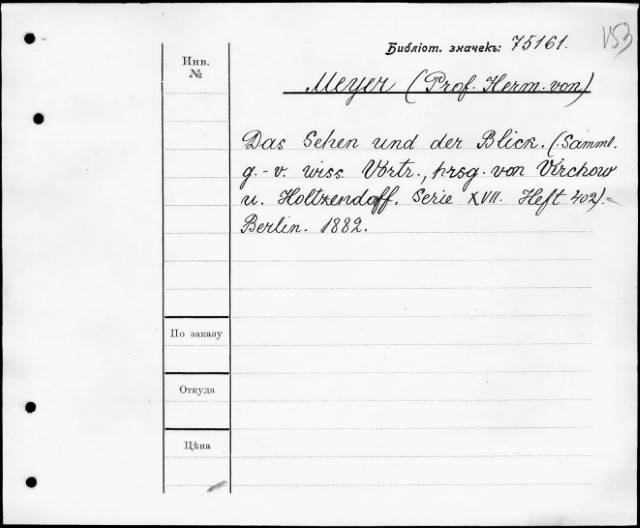 Библіот. значекъ: 75161.
153
Инв.
№
Meyer (Prof. Herm. von)
Das Sehen und der Blick. (Samml.
g.-v. wiss. Vortr., hrsg. von Virchow
u. Holtzendorff. Serie XVII. Heft 402).-
Berlin. 1882.
По заказу
Откуда
Цѣна